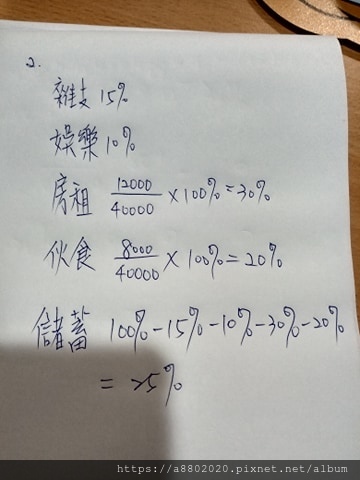 2.
雜支 15%
娛樂 10%
房租 12000/40000 × 100% = 30%
伙食 8000/40000 × 100% = 20%
儲蓄 100% - 15% - 10% - 30% - 20%
= 25%
https://a8802020.pixnet.net/album